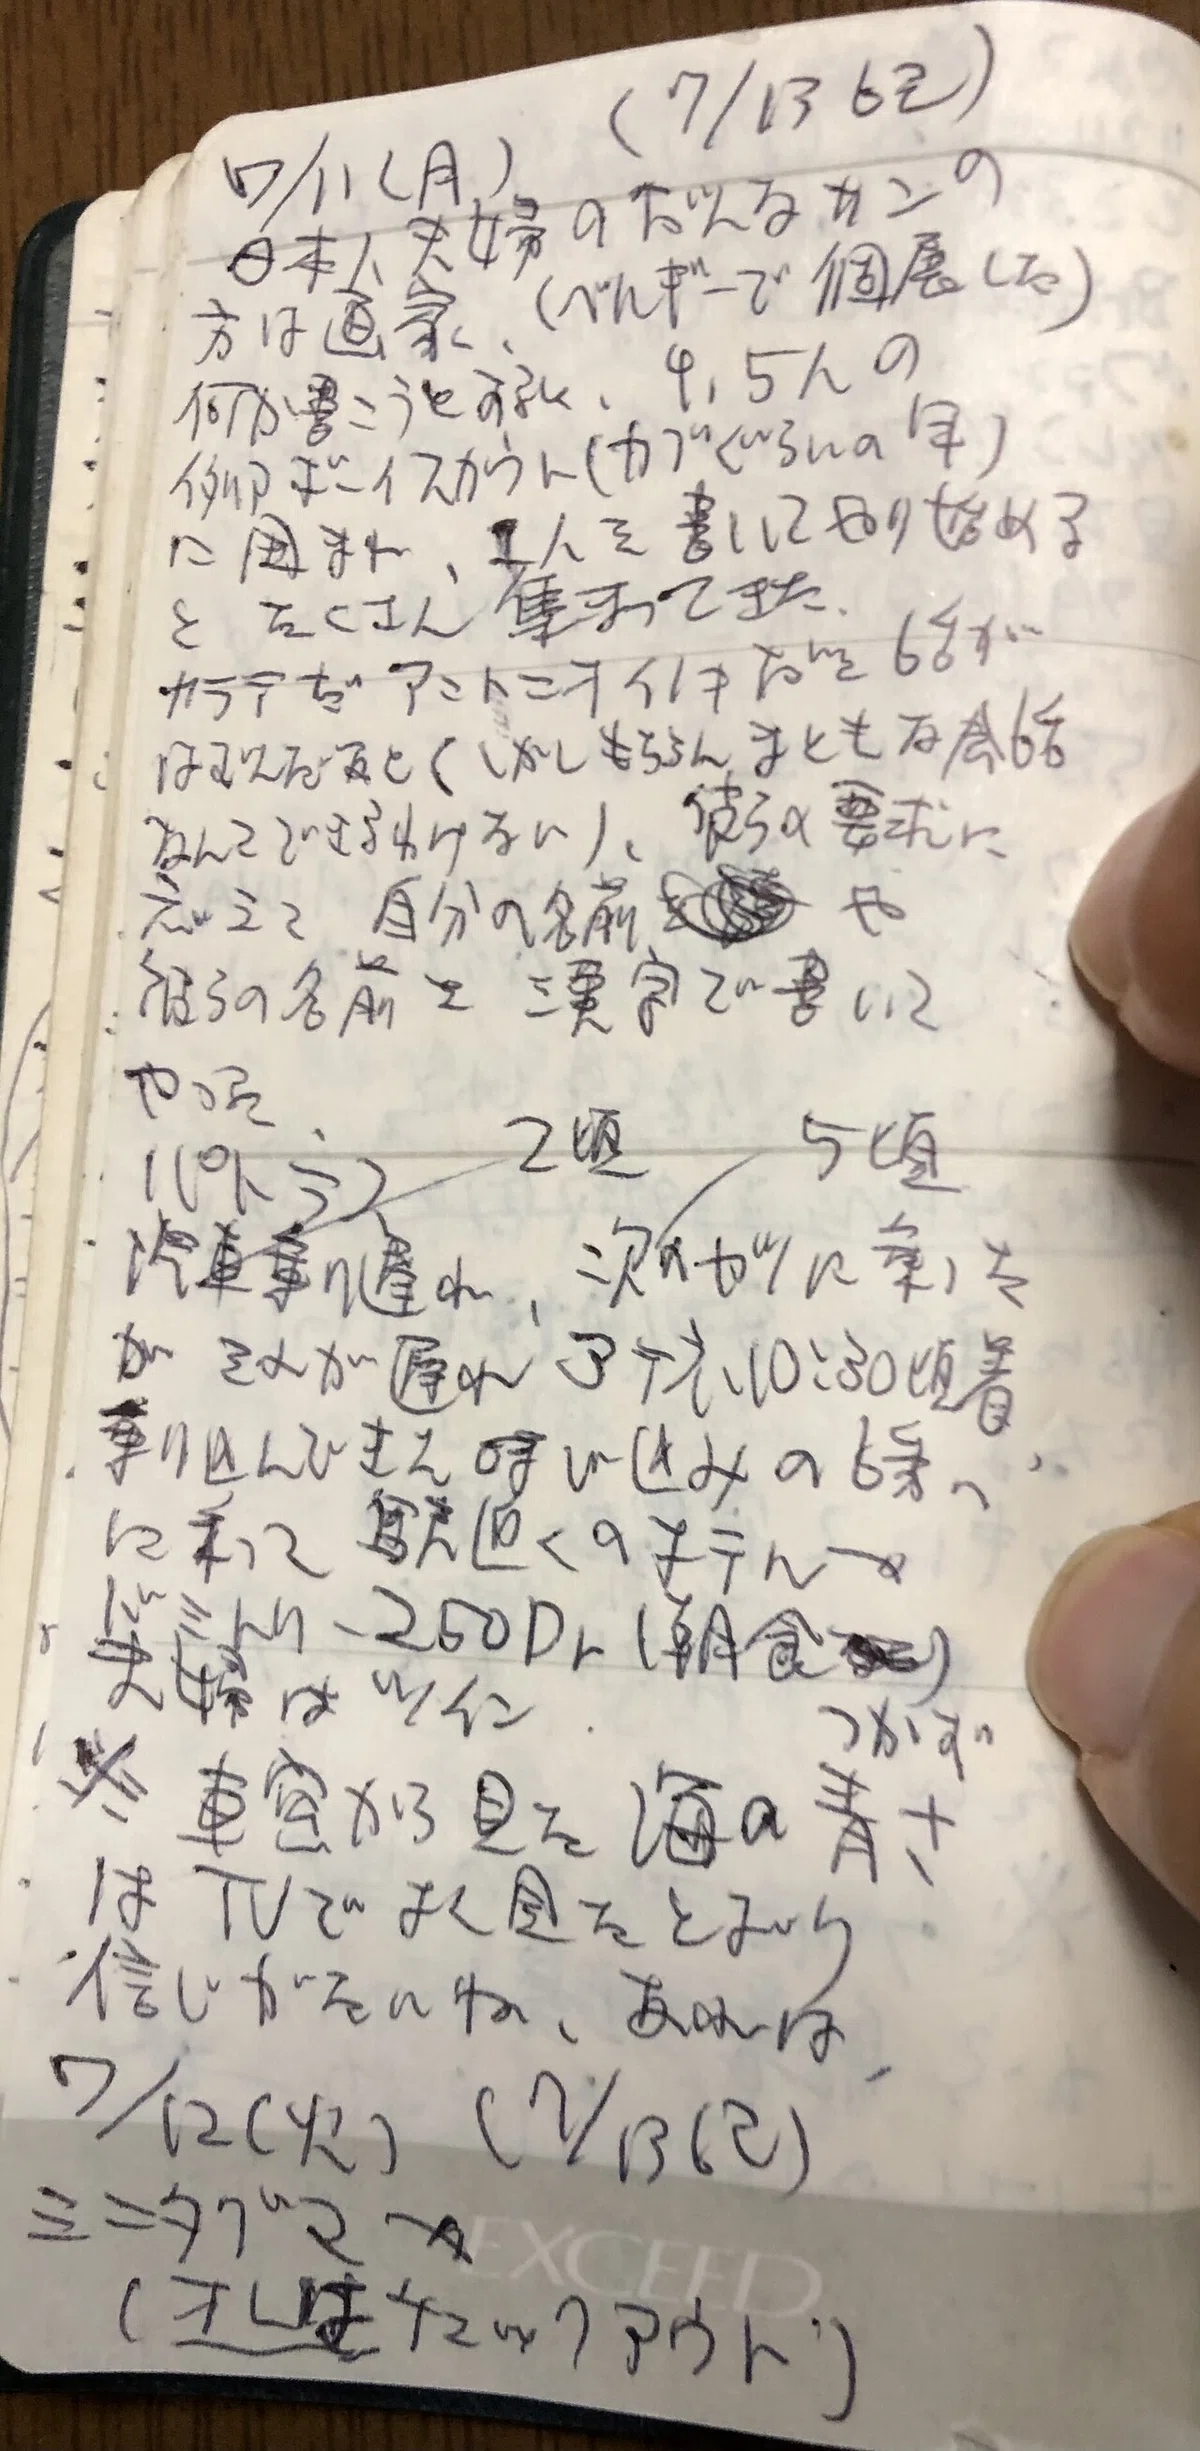 (7/13記)
7/11(月)
日本人夫婦のだんなサンの
方は画家、(ベルギーで個展した)
何か書こうとすると、4,5人の
例のボーイスカウト(カブぐらいの年)
に囲まれ、1人を書いてやり始める
と たくさん集まってきた。
カラテだ アントニオイノキだと話が
はずんだあと(しかしもちろんまともな会話
なんてできるわけない)、彼らの要求に
応えて 自分の名前や
彼らの名前を漢字で書いて
やった、
パトラス、 2頃 5頃
汽車乗り遅れ、次のがりに乗った
が これが遅れ アテネ、10:30頃着、
乗り込んできた呼び込みの
に乗って 駅近くのホテルへ
250Dr(朝食
つかず)
夫婦はツイン.
※ 車窓から見た海の青さ
は TVでよく見たとおり
信じがたいね、あれは、
7/12(火) (7/13記)
ミニタクデマへ
(オレはチェックアウト)
EXCEED